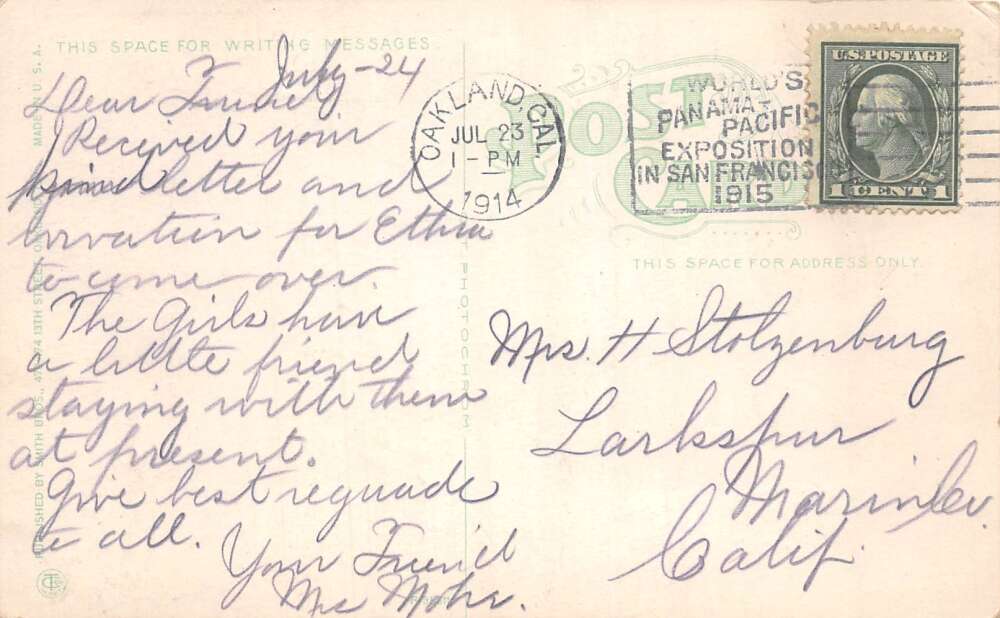 THIS SPACE FOR WRITING MESSAGES
MADE IN U.S.A.
July-24
Dear Friend
I Received your
kind letter and
invation for Ethra
to come over.
The Girls have
a little friend
staying with them
at present.
Give best reguads
to all.
Your Friend
Mrs Mohr.
OAKLAND, CAL.
JUL 23
1-PM
1914
WORLD'S
PANAMA-
PACIFIC
EXPOSITION
IN SAN FRANCISCO
1915
U.S. POSTAGE
1 CENT 1
POST
CARD
THIS SPACE FOR ADDRESS ONLY.
Mrs. H Stolzenburg
Larksspur
Marin Co.
Calif.
PUBLISHED BY SMITH BROS., 13TH STREET,
PHOTOCHROM